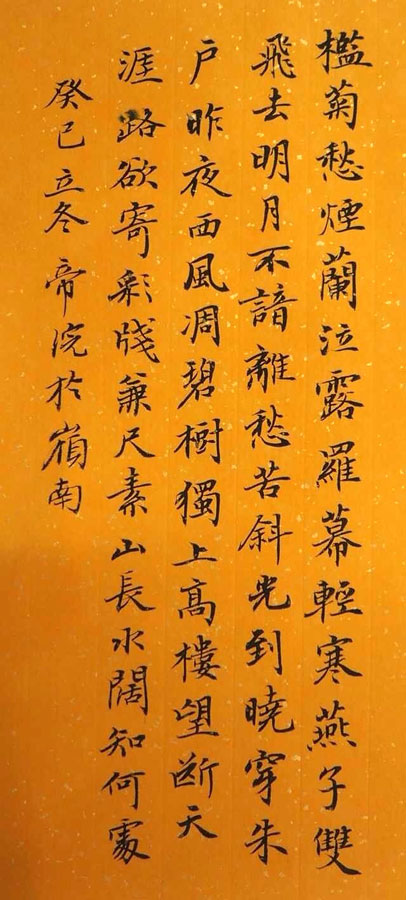 檻菊愁煙蘭泣露羅幕輕寒燕子雙
飛去明月不諳離愁苦斜光到曉穿朱
户昨夜西風凋碧樹獨上高樓望断天
涯路欲寄彩牋兼尺素山長水闊知何處
癸巳立冬帝浣於嶺南